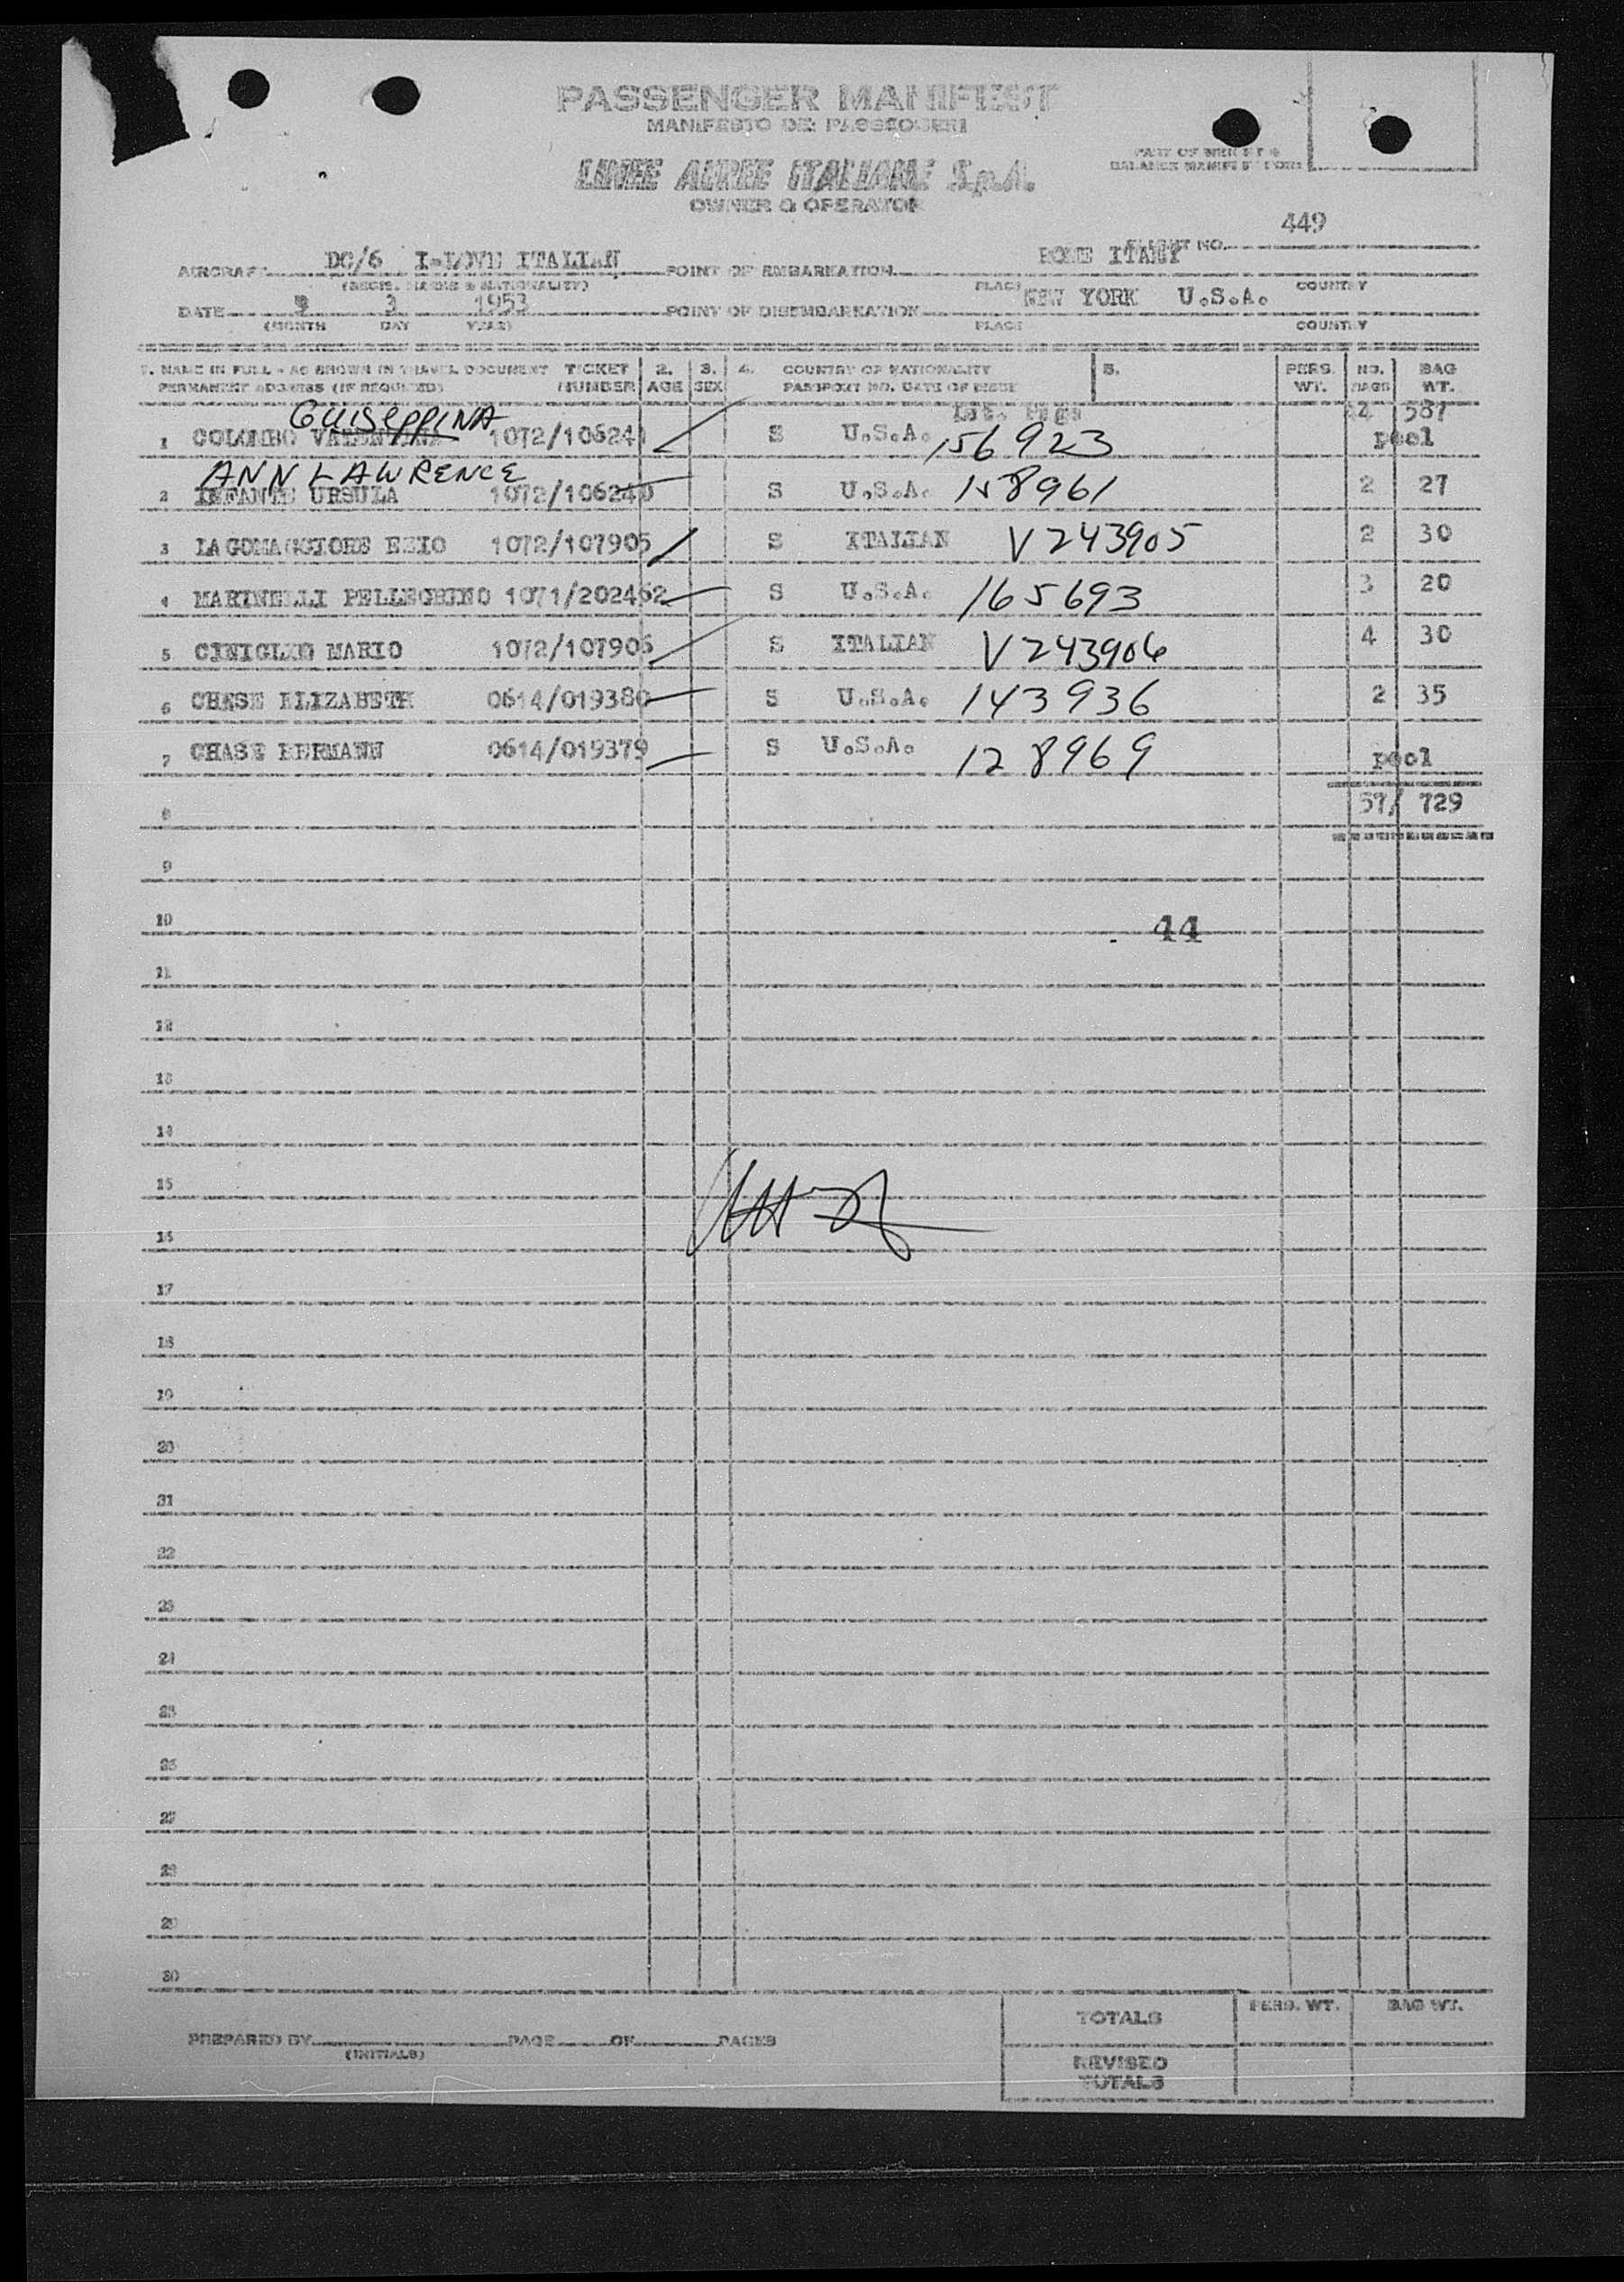 PASSENGER MANIFEST
MANIFESTO DEI PASSEGGERI
LINEE AEREE ITALIANE S.p.A.
OWNER O OPERATOR
PART OF WEIGHT &
BALANCE MANIFEST FORM
449
FLIGHT NO.
AIRCRAFT DC/6 I-LOVE ITALIAN POINT OF EMBARKATION ROME ITALY
(REGIS. MARKS & NATIONALITY) PLACE COUNTRY
DATE 3 1953 POINT OF DISEMBARKATION NEW YORK U.S.A.
(MONTH DAY YEAR) PLACE COUNTRY
1. NAME IN FULL - AS SHOWN IN TRAVEL DOCUMENT TICKET 2. 3. 4. COUNTRY OF NATIONALITY 5. PERS. NO. BAG
PERMANENT ADDRESS (IF REQUIRED) NUMBER AGE SEX PASSPORT NO. DATE OF ISSUE WT. BAGS WT.
GUISEPPINA 587
1 COLOMBO VALENTINA 1072/106241 S U.S.A. 156923 pool
ANN LAWRENCE
2 INFANTE URSULA 1072/106240 S U.S.A. 158961 2 27
3 LAGOMAGGIORE EZIO 1072/107905 S ITALIAN V243905 2 30
4 MARINELLI PELLEGRINO 1071/202462 S U.S.A. 165693 3 20
5 CINIGLIO MARIO 1072/107906 S ITALIAN V243906 4 30
6 CHASE ELIZABETH 0614/019380 S U.S.A. 143936 2 35
7 CHASE HERMANN 0614/019379 S U.S.A. 128969 pool
8 57/ 729
9
10 44
11
12
13
14
15
16
17
18
19
20
21
22
23
24
25
26
27
28
29
30
TOTALS PERS. WT. BAG WT.
PREPARED BY PAGE OF PAGES
(INITIALS)
REVISED
TOTALS